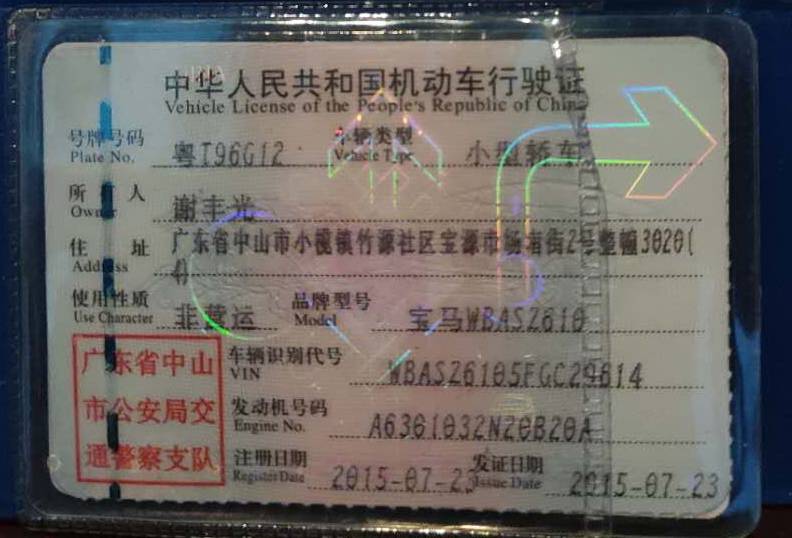 中华人民共和国机动车行驶证
Vehicle License of the People's Republic of China
号牌号码 粤T96G12 车辆类型 小型轿车
Plate No. Vehicle Type
所有人 谢丰光
Owner
住址 广东省中山市小榄镇竹源社区宝源市场南街2号整幢3020(
Address 4)
使用性质 非营运 品牌型号 宝马WBASZ610
Use Character Model
广东省中山
市公安局交
通警察支队
车辆识别代号 WBASZ6105FGC29614
VIN
发动机号码 A6361032N20B20A
Engine No.
注册日期 2015-07-23 发证日期 2015-07-23
Register Date Issue Date